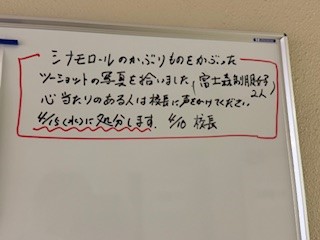 シナモロールのかぶりものをかぶった
ツーショットの写真を拾いました(富士森制服女子2人)
心当たりのある人は校長に声をかけてください。
4/15(水)に処分します. 4/10 校長